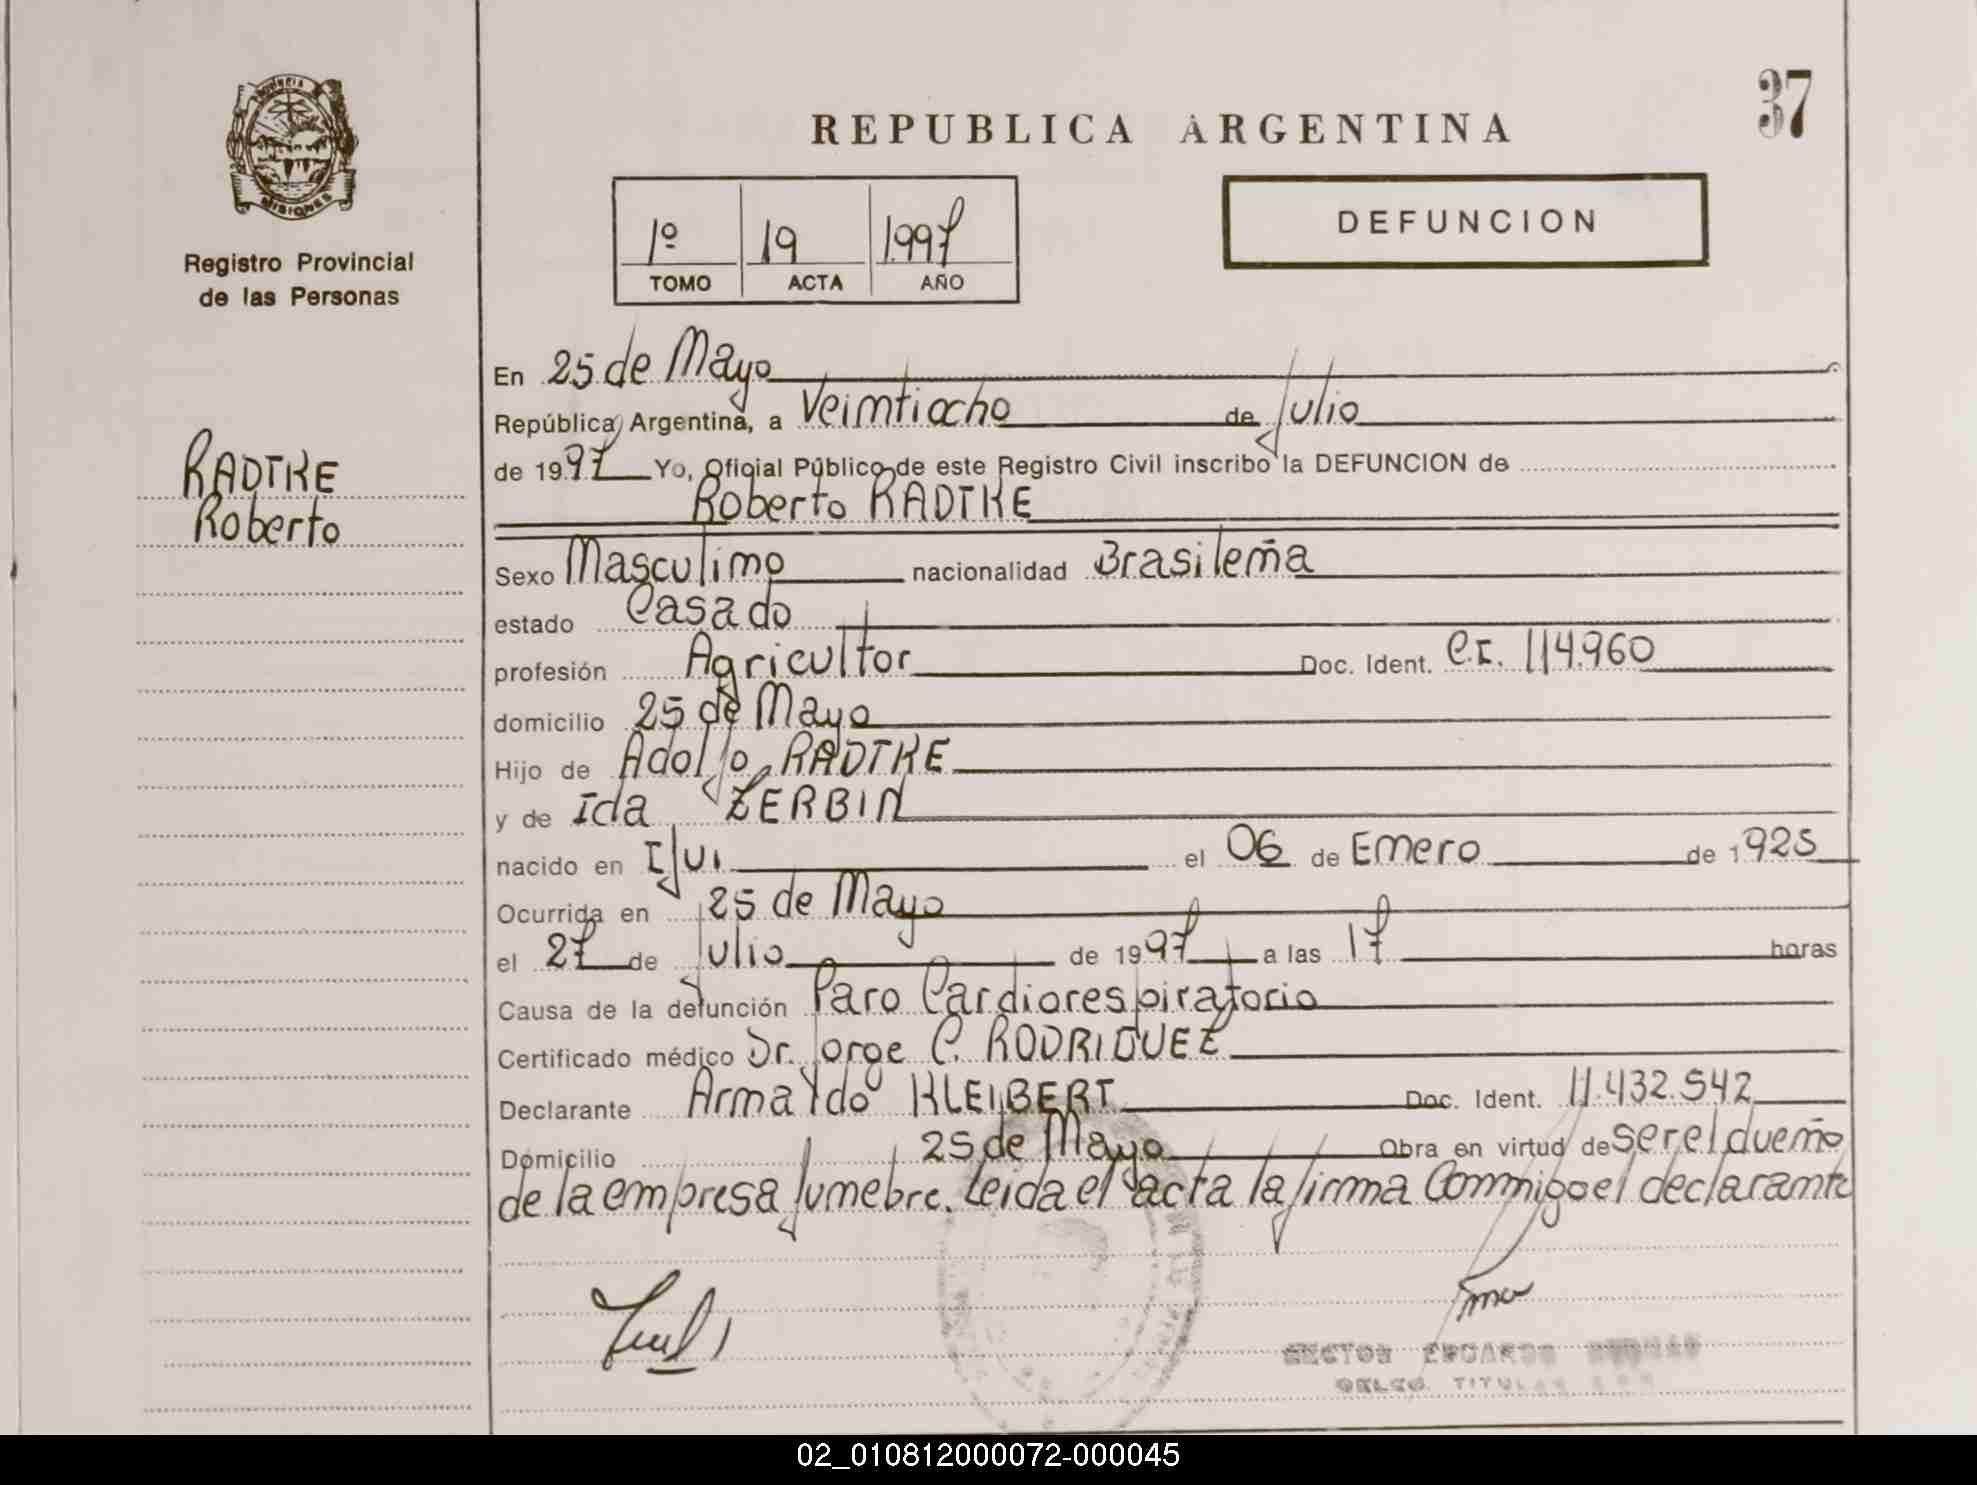 37
PROVINCIA
MISIONES
Registro Provincial
de las Personas
RADTKE
Roberto
REPUBLICA ARGENTINA
1º 19 1.997
TOMO ACTA AÑO
DEFUNCION
En 25 de Mayo
República Argentina, a Veintiocho de Julio
de 1997 Yo, Oficial Público de este Registro Civil inscribo la DEFUNCION de
Roberto RADTKE
Sexo Masculino nacionalidad Brasileña
estado Casado
profesión Agricultor Doc. Ident. C.I. 114.960
domicilio 25 de Mayo
Hijo de Adolfo RADTKE
y de Ida ZERBIN
nacido en Ijui el 06 de Enero de 1925
Ocurrida en 25 de Mayo
el 27 de Julio de 1997 a las 17 horas
Causa de la defunción Paro Cardiorespiratorio
Certificado médico Dr. Jorge C. RODRIGUEZ
Declarante Arnaldo KLEIBERT Doc. Ident. 11.432.542
Domicilio 25 de Mayo Obra en virtud de ser el dueño
de la empresa funebre. Leida el acta la firma Conmigo el declarante
EDUARDO
TITULAR
02_010812000072-000045